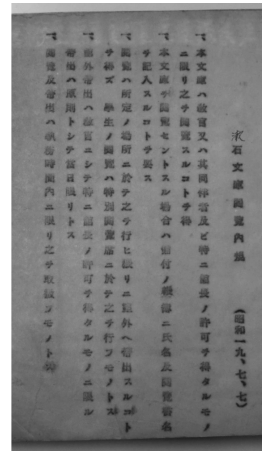 漱石文庫閲覧内規　（昭和一九、七、七）
一、本文庫ハ教官又ハ其同伴者及ビ特ニ館長ノ許可ヲ得タルモノ
ニ限リ之ヲ閲覧スルコトヲ得
一、本文庫ヲ閲覧セントスル場合ハ備付ノ帳簿ニ氏名及閲覧書名
ヲ記入スルコトヲ要ス
一、閲覧ハ所定ノ場所ニ於テ之ヲ行ヒ猥リニ室外ヘ帯出スルコト
ヲ得ズ　学生ノ閲覧ハ特別閲覧室ニ於テ之ヲ行フモノトス
一、館外帯出ハ教官ニシテ特ニ館長ノ許可ヲ得タルモノニ限ル
帯出ハ原則トシテ当日限リトス
一、閲覧及帯出ハ執務時間内ニ限リ之ヲ取扱フモノトス